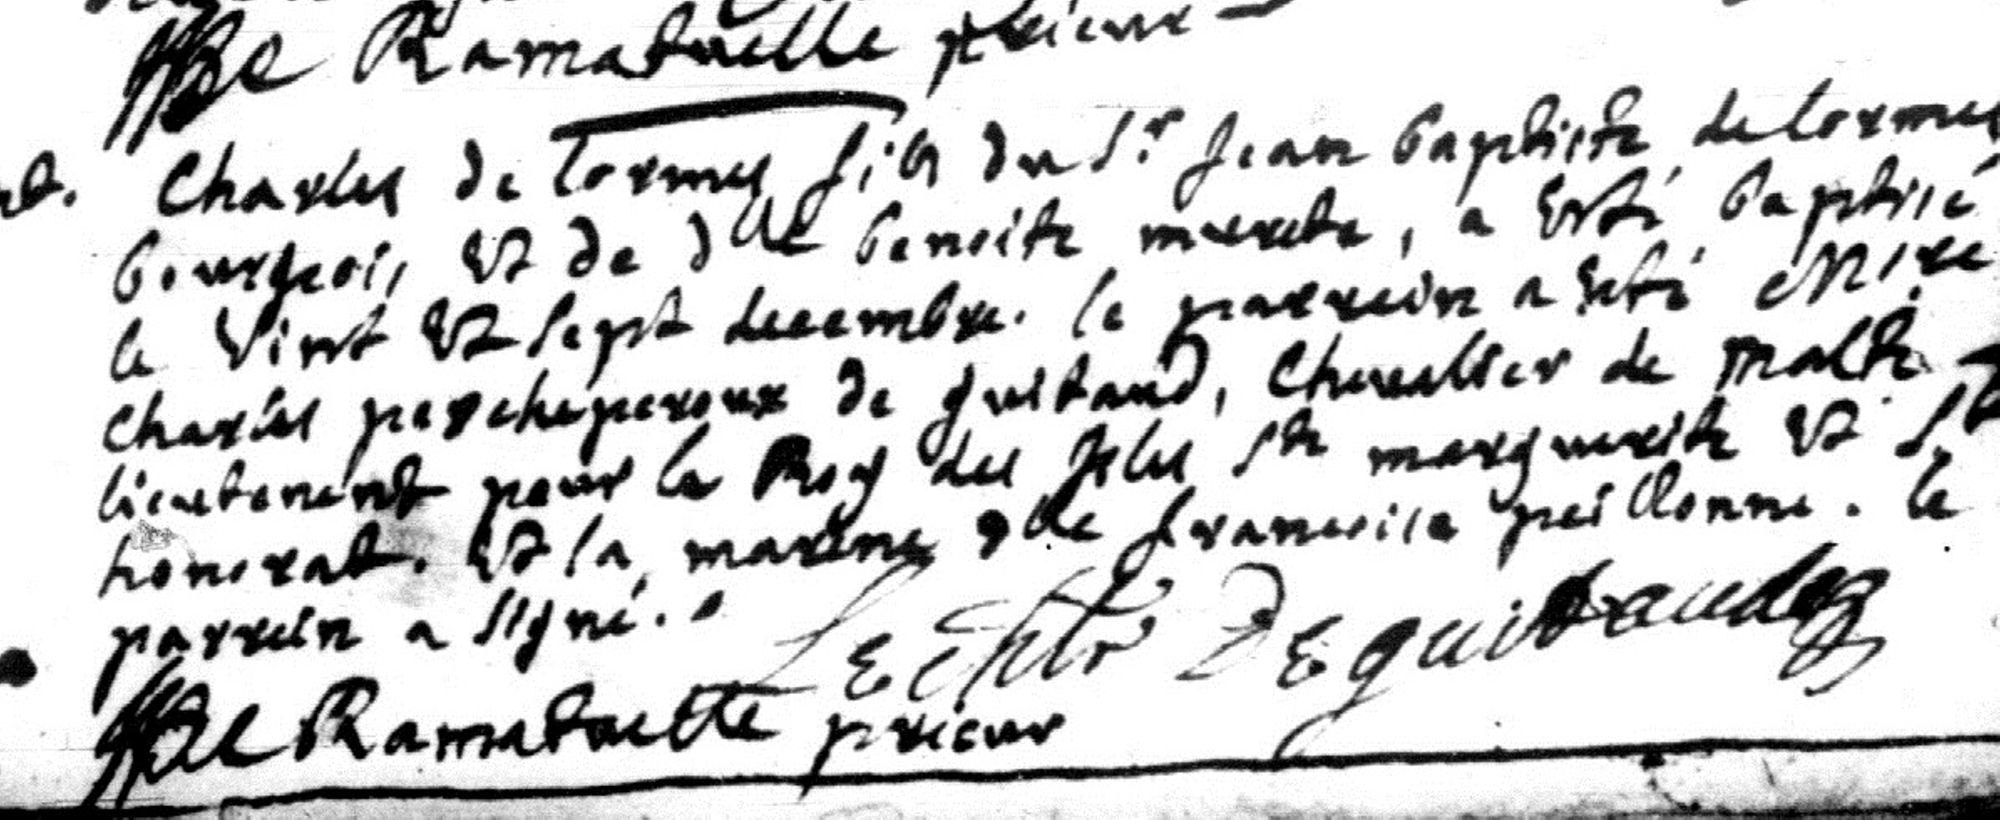 De Ramatuelle prieur
Charles de lormes fils du Sr. Jean baptiste de lormes
bourgeois, Et de dlle benoite murete, a Esté baptisé
le Vint Et Sept decembre. le parrein a esté Mire
Charles percheperoux de guitaud, Chevallier de malte
lieutenent pour le Roy des Isles Ste marguerite Et St
honorat. Et la marine dlle francoise peillonne. le
parrein a signé.
Le chlr De guitaud
De Ramatuelle prieur